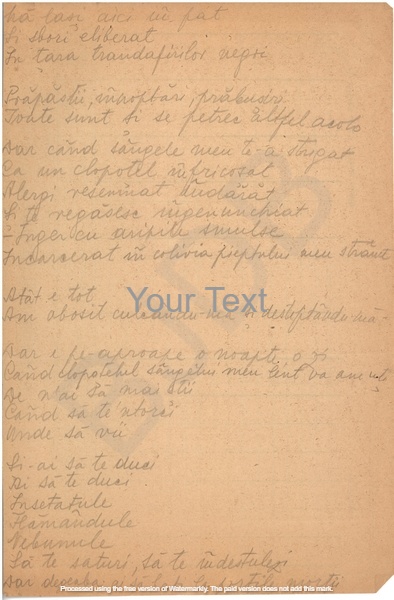 mă lași aici în pat
Și sbori eliberat
În țara trandafirilor negri
Prăpăstii, înoptări, prăbușiri
Toate sunt și se petrec altfel acolo
Dar când sângele meu te-a strigat
Ca un clopotel înfricoșat
Alergi resemnat îndărăt
Și te regăsesc îngenunchiat
Înger cu aripile smulse
Încarcerat în colivia pieptului meu strâmt
Atât e tot
Your Text
Am obosit culcându-mă și deșteptându-mă
Dar e pe-aproape o noapte, o zi
Când clopotelul sângelui meu lent va
De n'ai să mai știi
Când să te'ntorci
Unde să vii
Și-ai să te duci
Ai să te duci
Însetatule
Flămândule
Nebunule
Să te saturi, să te îndestulezi
Dar
Processed using the free version of Watermarkly. The paid version does not add this mark.